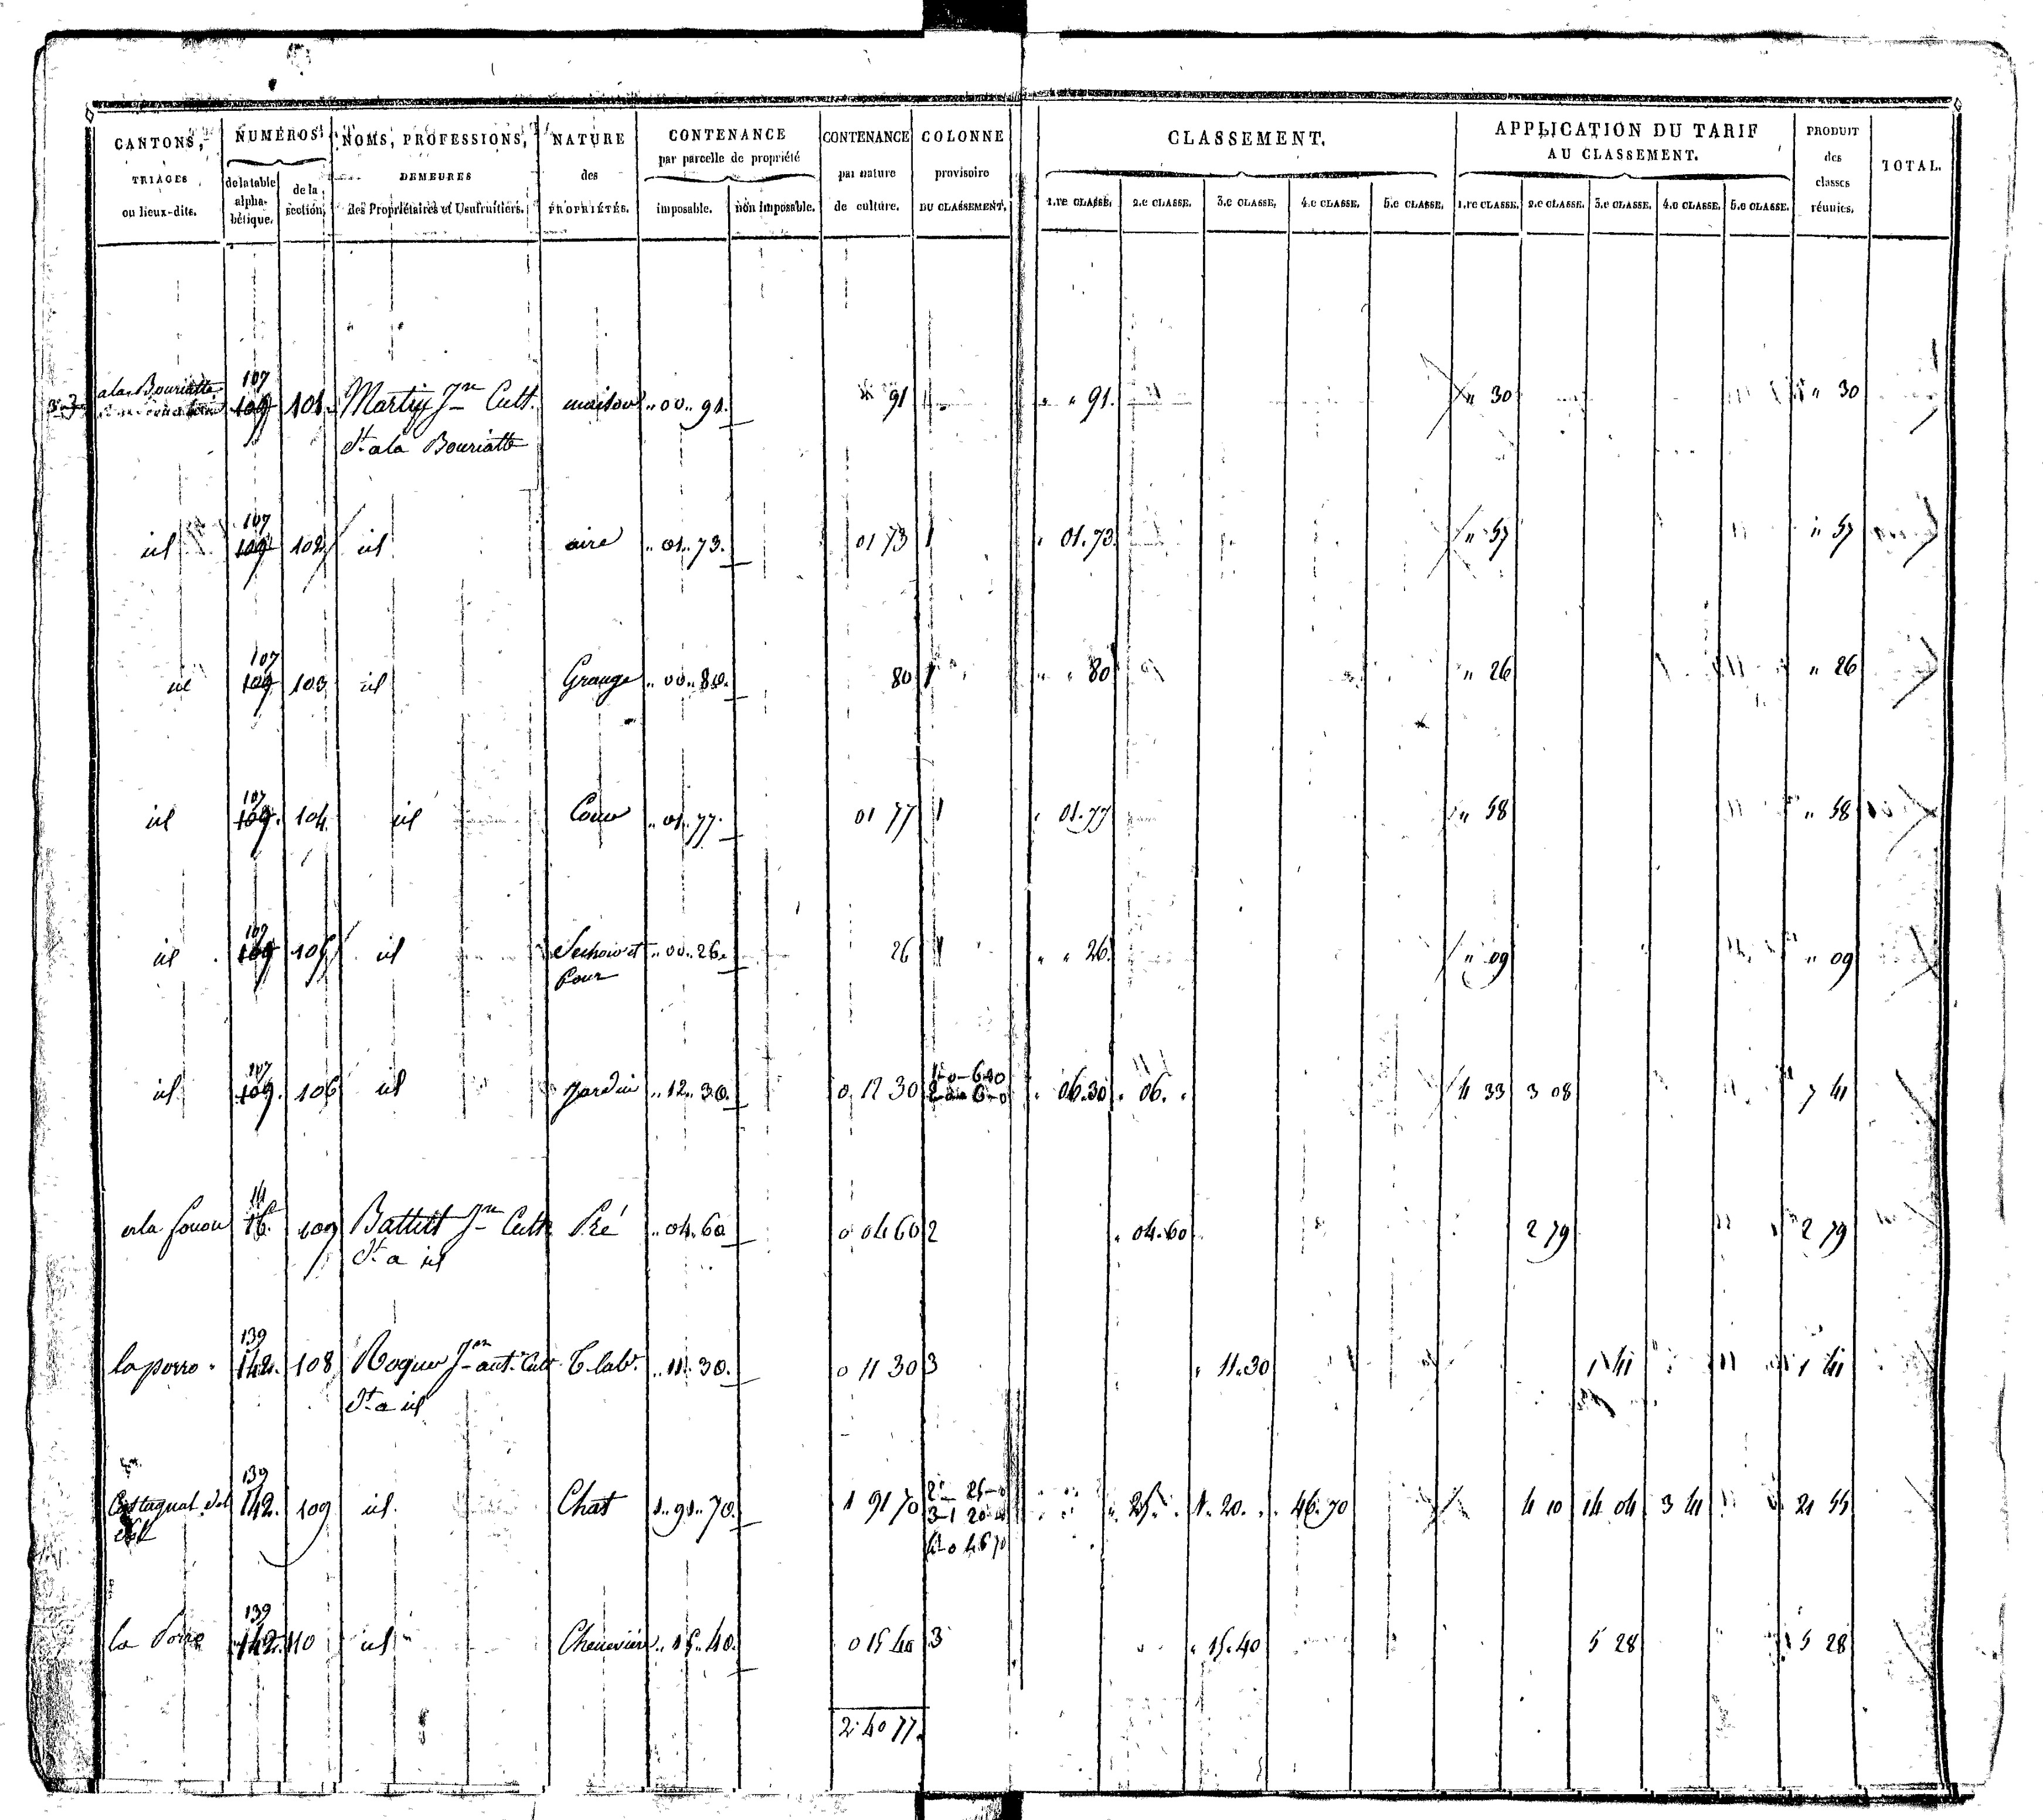 CANTONS, TRIAGES ou lieux-dits.
NUMÉROS
de la table alpha- bétique.
de la section.
NOMS, PROFESSIONS, DEMEURES des Propriétaires et Usufruitiers.
NATURE des PROPRIÉTÉS.
CONTENANCE par parcelle de propriété
imposable.
non imposable.
CONTENANCE par nature de culture.
COLONNE provisoire DU CLASSEMENT.
CLASSEMENT.
1.re CLASSE. 2.e CLASSE. 3.e CLASSE. 4.e CLASSE. 5.e CLASSE.
APPLICATION DU TARIF AU CLASSEMENT.
1.re CLASSE. 2.e CLASSE. 3.e CLASSE. 4.e CLASSE. 5.e CLASSE.
PRODUIT des classes réunies.
TOTAL.
107
ala Bouriatte 109 101. Martin Jn Cult. maison " 00 " 91. " 91 1 " " 91. " 30 " 30
dt ala Bouriatte
107
id 109 102 id aire " 01 " 73. 01 73 1 " 01. 73. " 57 " 57
107
id 109 103 id Grange " 00 " 80. 80 1 " " 80 " 26 " 26
107
id 109. 104 id Cour " 01 " 77. 01 77 1 " 01. 77 " 58 " 58
107
id 109 105 id Sechoir et " 00 " 26. 26 1 " " 26. " 09 " 09
four
107
id 109. 106 id jardin " 12 " 30. 0 12 30 1-0-6-30 " 06.30 " 06. " 4 33 3 08 7 41
2-0-6-0
14
ala fouon 16. 107 Battut Jn Cult Pré " 04. 60 0 04 60 2 " 04. 60 2 79 2 79
dt a id
139
la porro 142. 108 Roques Jn ant. Cult T. lab. " 11 " 30. 0 11 30 3 " 11. 30 1 41 1 41
dt a id
139
Castagnal del 142. 109 id. Chat 1 " 91 " 70. 1 91 70 2- 25-0 " 25. " 1. 20. " " 46. 70 4 10 14 04 3 41 21 55
3-1 20-0
4-0 46 70
139
la Porro 142. 110 id Chenevière " 15 " 40. 0 15 40 3 " 15. 40 5 28 5 28
2 40 77.